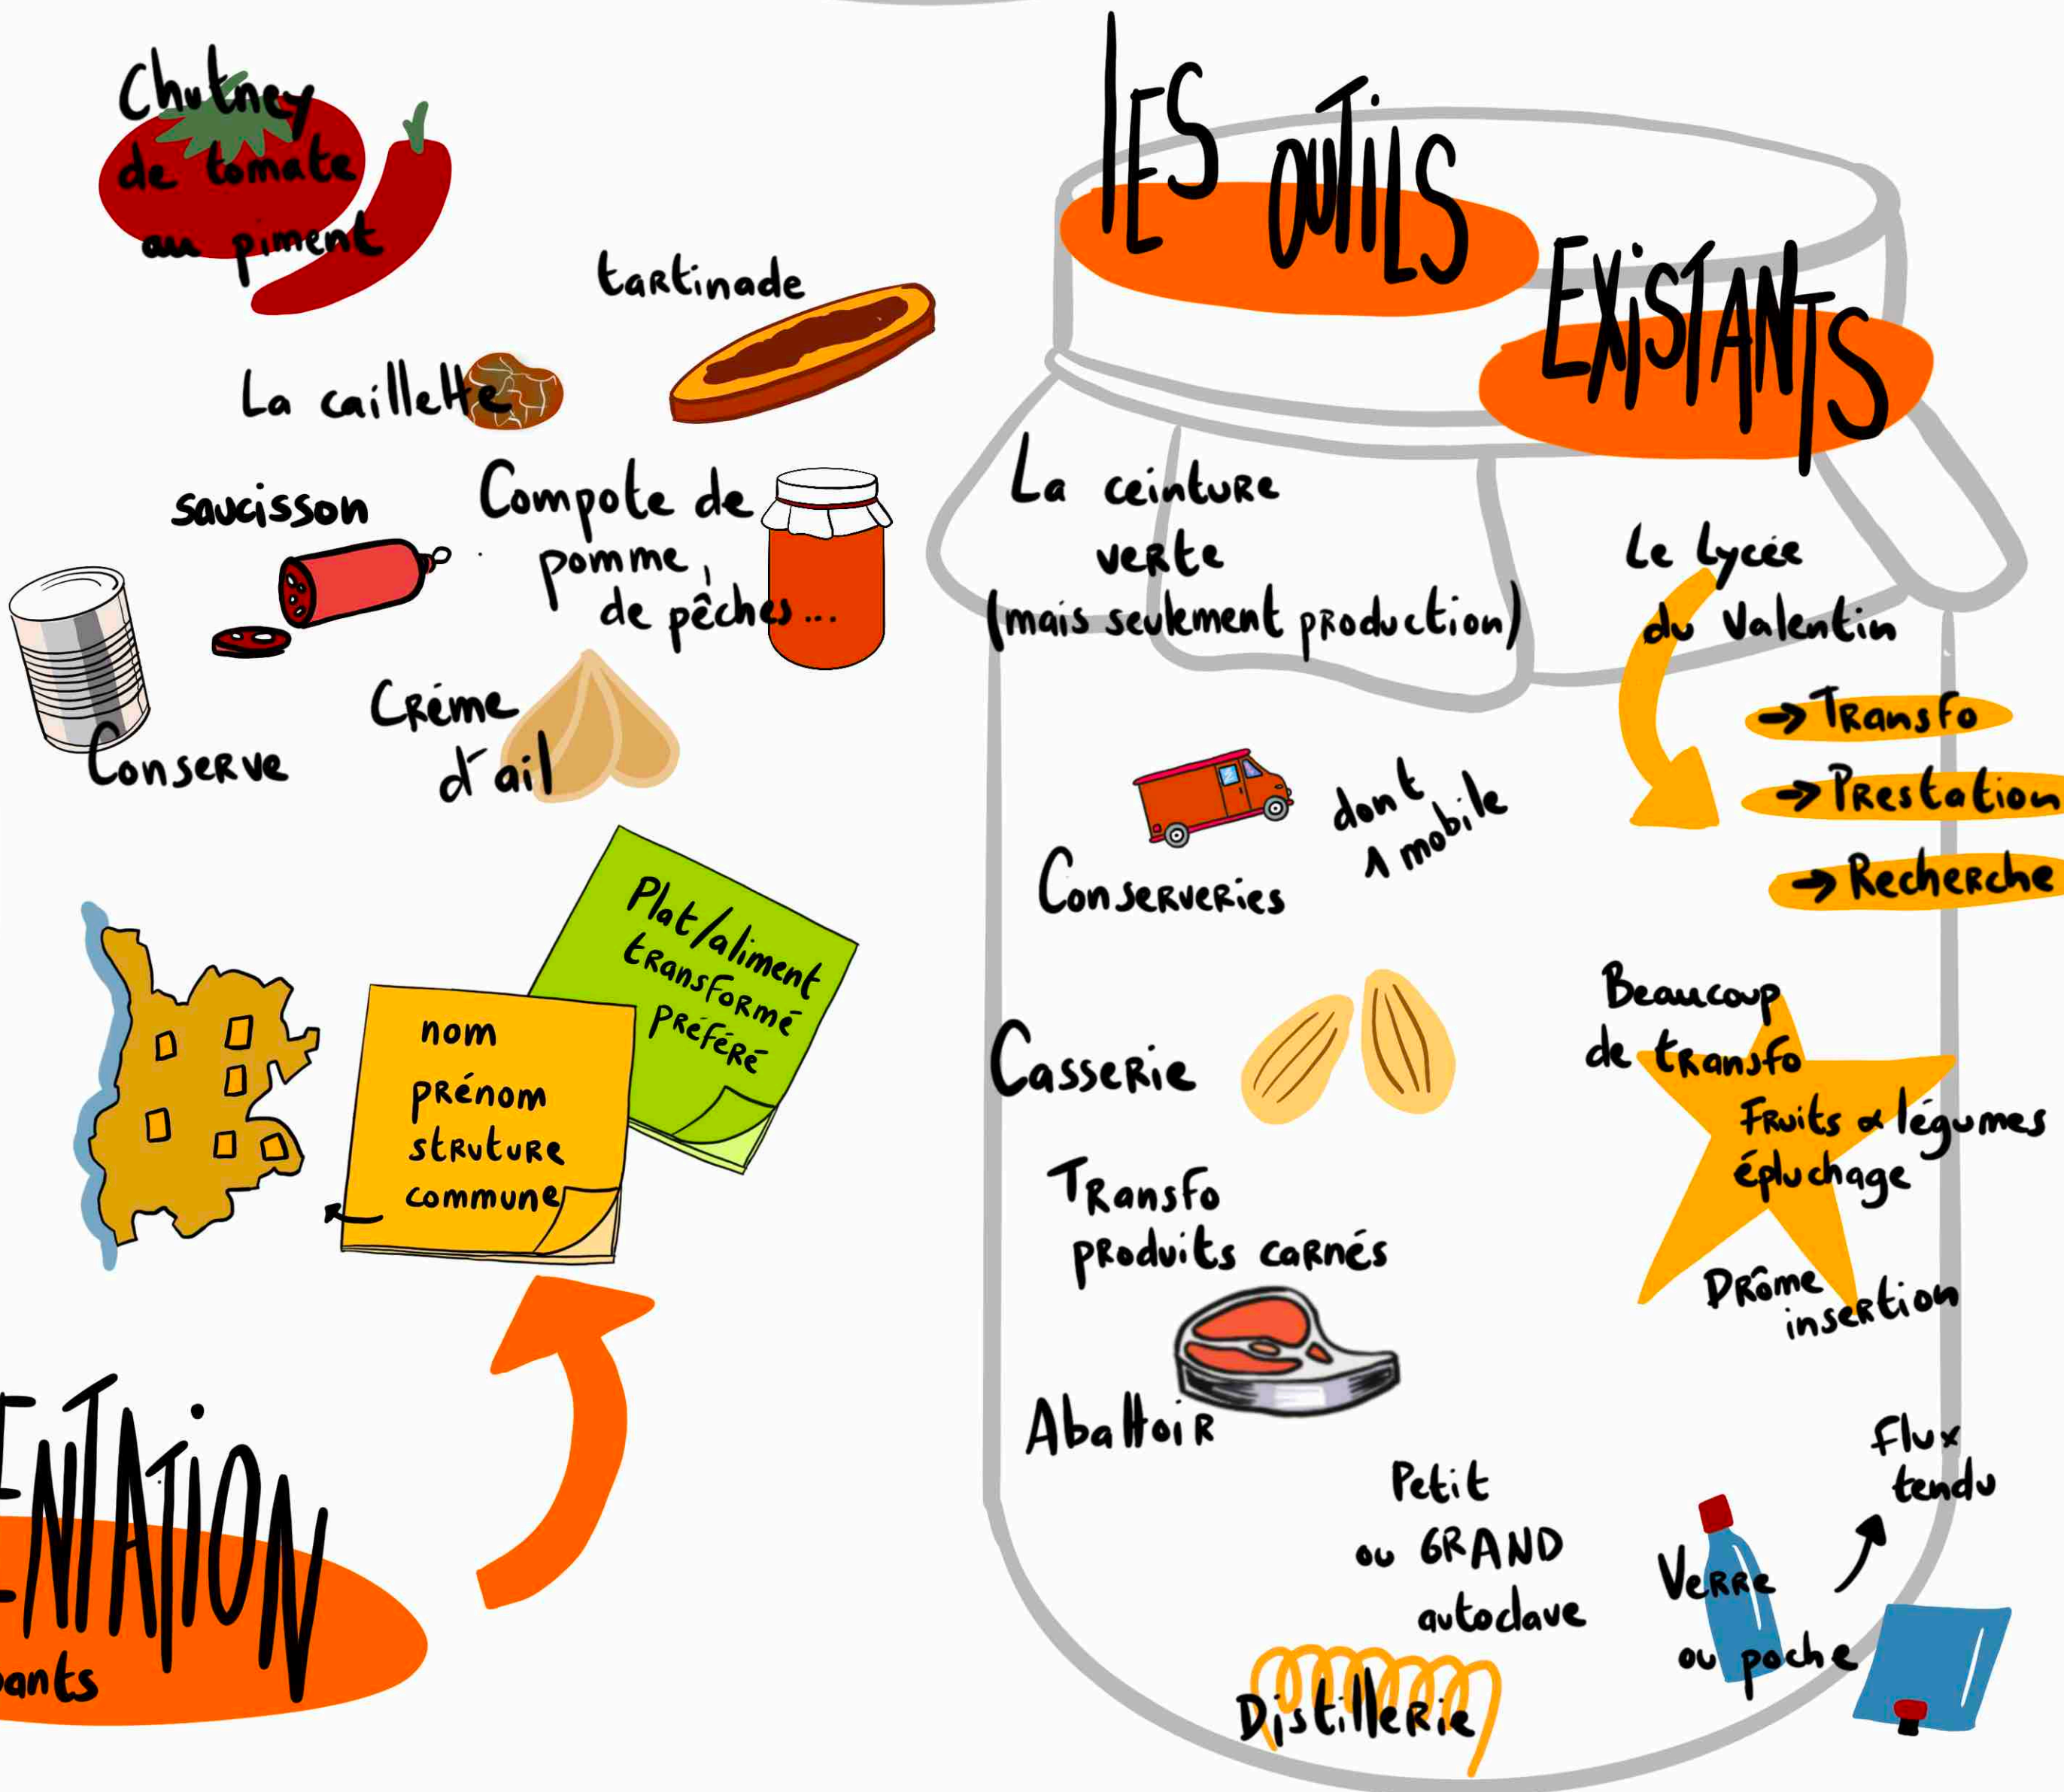 Chutney
de tomate
au piment
tartinade
La caillette
saucisson
Compote de
pomme,
de pêches...
Conserve
Crème
d'ail
Plat/aliment
transformé
préféré
nom
prénom
struture
commune
ENTATiON
pants
lES OUTiLS
EXiSTANTS
La ceinture
verte
(mais seulement production)
Le Lycée
du Valentin
→ Transfo
→ Prestation
→ Recherche
dont
1 mobile
Conserveries
Casserie
Beaucoup
de transfo
Fruits & légumes
épluchage
Drôme
insertion
Transfo
produits carnés
Abattoir
Petit
ou GRAND
autoclave
Distillerie
Flux
tendu
Verre
ou poche